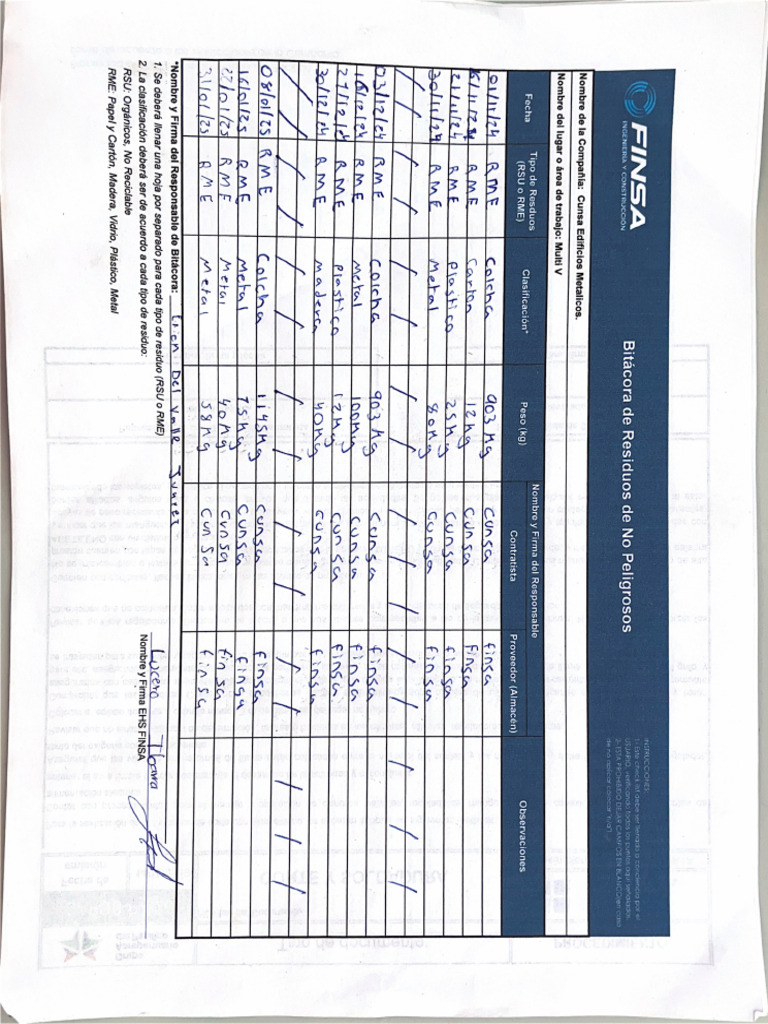 FINSA
INGENIERÍA Y CONSTRUCCIÓN
Bitácora de Residuos de No Peligrosos
INSTRUCCIONES:
Nombre de la Compañía: Cunsa Edificios Metalicos.
Nombre del lugar o área de trabajo: Multi V
Fecha Tipo de Residuos (RSU o RME) Clasificación* Peso (kg) Nombre y Firma del Responsable Observaciones
Contratista Proveedor (Almacén)
01/11/24 RME Colcha 903 Kg Cunsa finsa
6/11/24 RME Carton 12Kg Cunsa Finsa
21/11/24 RME Plastico 25Kg Cunsa finsa
30/11/24 RME Metal 80Kg Cunsa finsa
/ / / / / / / / / /
03/12/24 RME Colcha 903 Kg Cunsa finsa
18/12/24 RME Metal 100Kg Cunsa finsa
27/12/24 RME Plastico 12Kg Cunsa finsa
30/12/24 RME Madera 40Kg Cunsa finsa
/ / / / / / / / / /
08/01/25 RME Colcha 1145Kg Cunsa finsa
16/01/25 RME Metal 75Kg Cunsa finsa
27/01/25 RME Metal 40Kg Cunsa finsa
31/01/25 RME Metal 58Kg Cunsa finsa
*Nombre y Firma del Responsable de Bitácora: Del Valle Juarez
Nombre y Firma EHS FINSA
1. Se deberá llenar una hoja por separado para cada tipo de residuo (RSU o RME)
2. La clasificación deberá ser de acuerdo a cada tipo de residuo:
RSU: Orgánicos, No Reciclable
RME: Papel y Cartón, Madera, Vidrio, Plástico, Metal